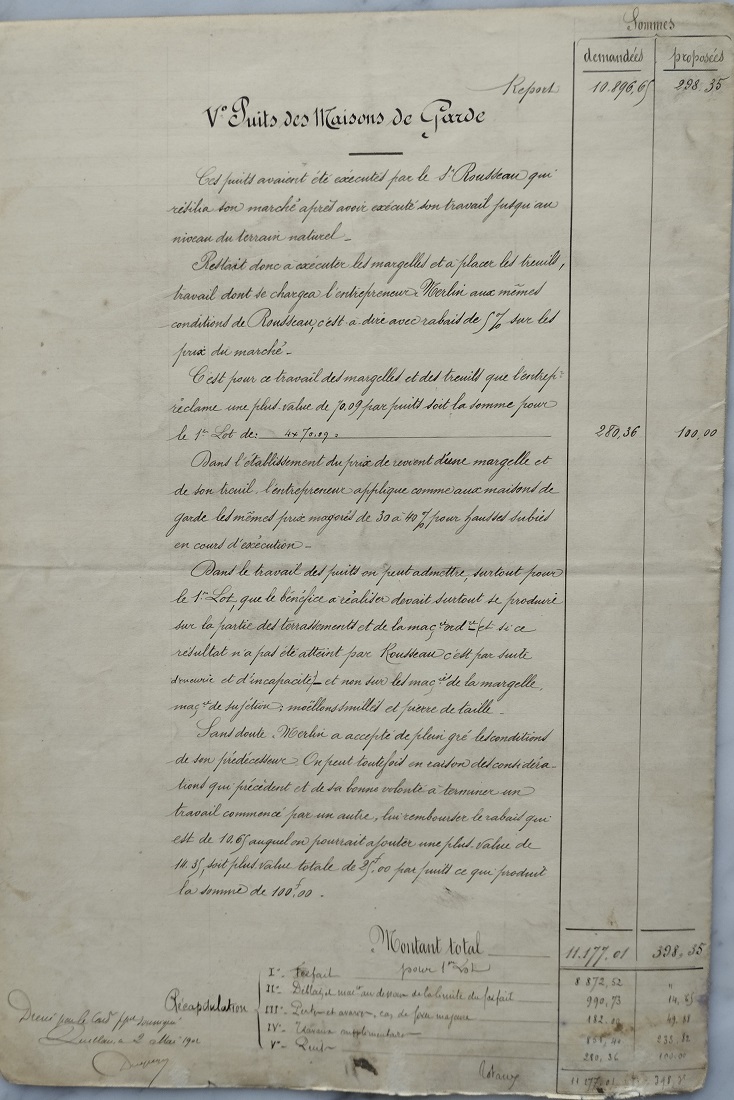 Sommes
demandées proposées
Report 10.896,65 298.35
V° Puits des Maisons de Garde
Ces puits avaient été exécutés par le Sr Rousseau qui
résilia son marché après avoir exécuté son travail jusqu'au
niveau du terrain naturel.
Restait donc à exécuter les margelles et à placer les treuils,
travail dont se chargea l'entrepreneur Merlin aux mêmes
conditions de Rousseau, c'est à dire avec rabais de 5% sur les
prix du marché.
C'est pour ce travail des margelles et des treuils que l'entrepr
réclame une plus-value de 70.09 par puits soit la somme pour
le 1er Lot de: 4x70.09 = 280,36 100,00
Dans l'établissement du prix de revient d'une margelle et
de son treuil l'entrepreneur applique comme aux maisons de
garde les mêmes prix majorés de 30 à 40% pour hausses subies
en cours d'exécution.
Dans le travail des puits on peut admettre, surtout pour
le 1er Lot, que le bénéfice à réaliser devait surtout se produire
sur la partie des terrassements et de la maçrie ordre (et si ce
résultat n'a pas été atteint par Rousseau c'est par suite
d'incurie et d'incapacité) et non sur les maçries de la margelle,
maçrie de sujétion: moëllons smillés et pierre de taille.
Sans doute Merlin a accepté de plein gré les conditions
de son prédécesseur. On peut toutefois en raison des considéra-
tions qui précèdent et de sa bonne volonté à terminer un
travail commencé par un autre, lui rembourser le rabais qui
est de 10,65 auquel on pourrait ajouter une plus-value de
14.35, soit plus-value totale de 25f.00 par puits ce qui produit
la somme de 100f.00.
Montant total 11.177.01 398,35
pour 1er Lot
Récapitulation
I° Forfait 8 872,52 "
II° Déblai et maçrie au dessous de la limite du forfait 990,73 14,65
III° Pertes et avaries, cas de force majeure 182
IV° Travaux supplémentaires 232,82
V° Puits 280,36 100.00
Totaux 11177.01 398,35
Dressé par le Cond
2 Mai